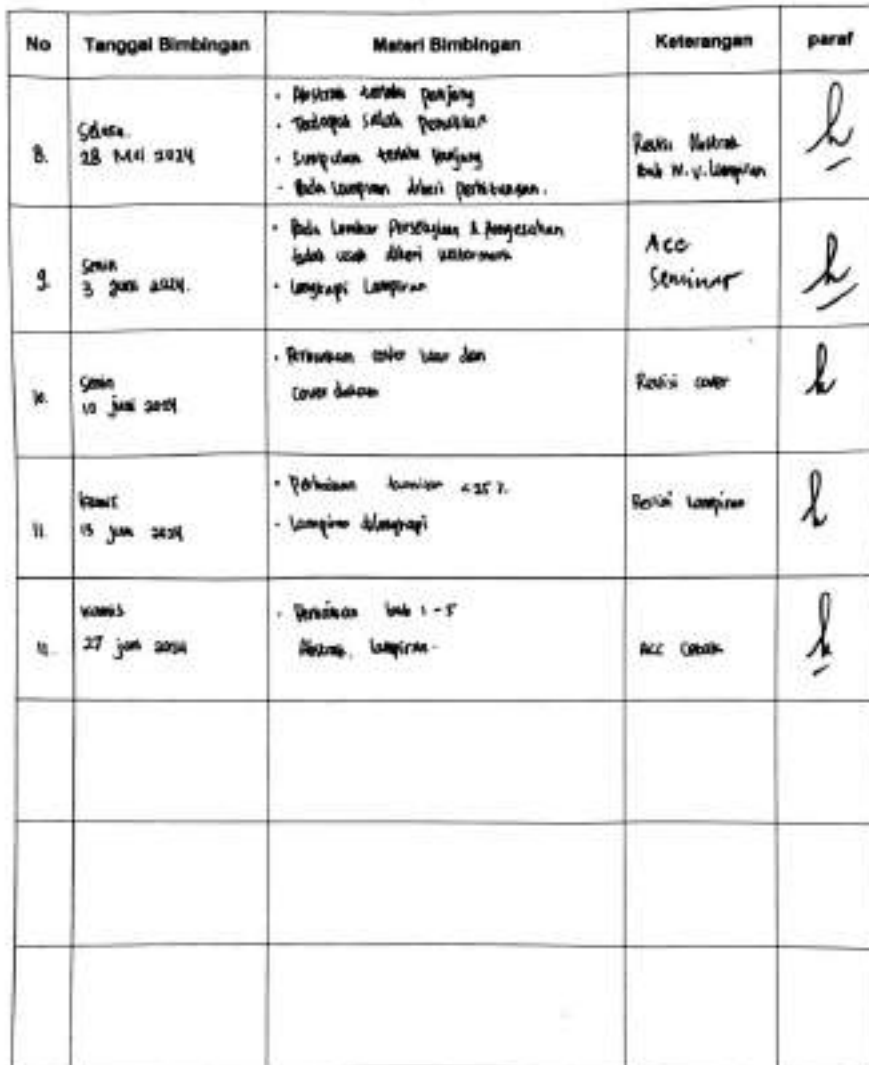 No Tanggal Bimbingan Materi Bimbingan Keterangan paraf
8. Selasa. 28 Mei 2024
- Abstrak terlalu panjang
- Terdapat salah penulisan
- Simpulan terlalu panjang
- Pada lampiran diberi perhitungan.
Revisi Abstrak
Bab IV. V. Lampiran
9. Senin 3 Juni 2024.
- Pada Lembar Persetujuan & Pengesahan
tidak usah diberi watermark
- Lengkapi Lampiran
Acc
Seminar
10. Senin 10 juni 2024
- Perbaikan cover luar dan
cover dalam
Revisi cover
11. Kamis 13 juni 2024
- Perbaikan turnitin <25%
- Lampiran dilengkapi
Revisi Lampiran
Kamis 27 juni 2024
- Perbaikan bab 1-5
Abstrak, lampiran-
ACC Cetak